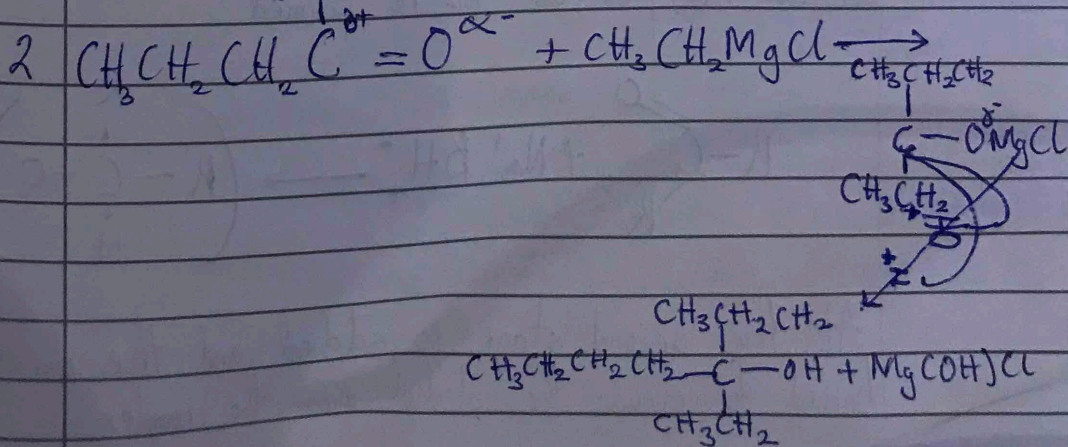 2 CH₃CH₂CH₂C^∂+ = O^α- + CH₃CH₂MgCl →
CH₃CH₂CH₂
C — O^δ-MgCl
CH₃CH₂
CH₃CH₂CH₂
CH₃CH₂CH₂CH₂—C—OH + Mg(OH)Cl
CH₃CH₂